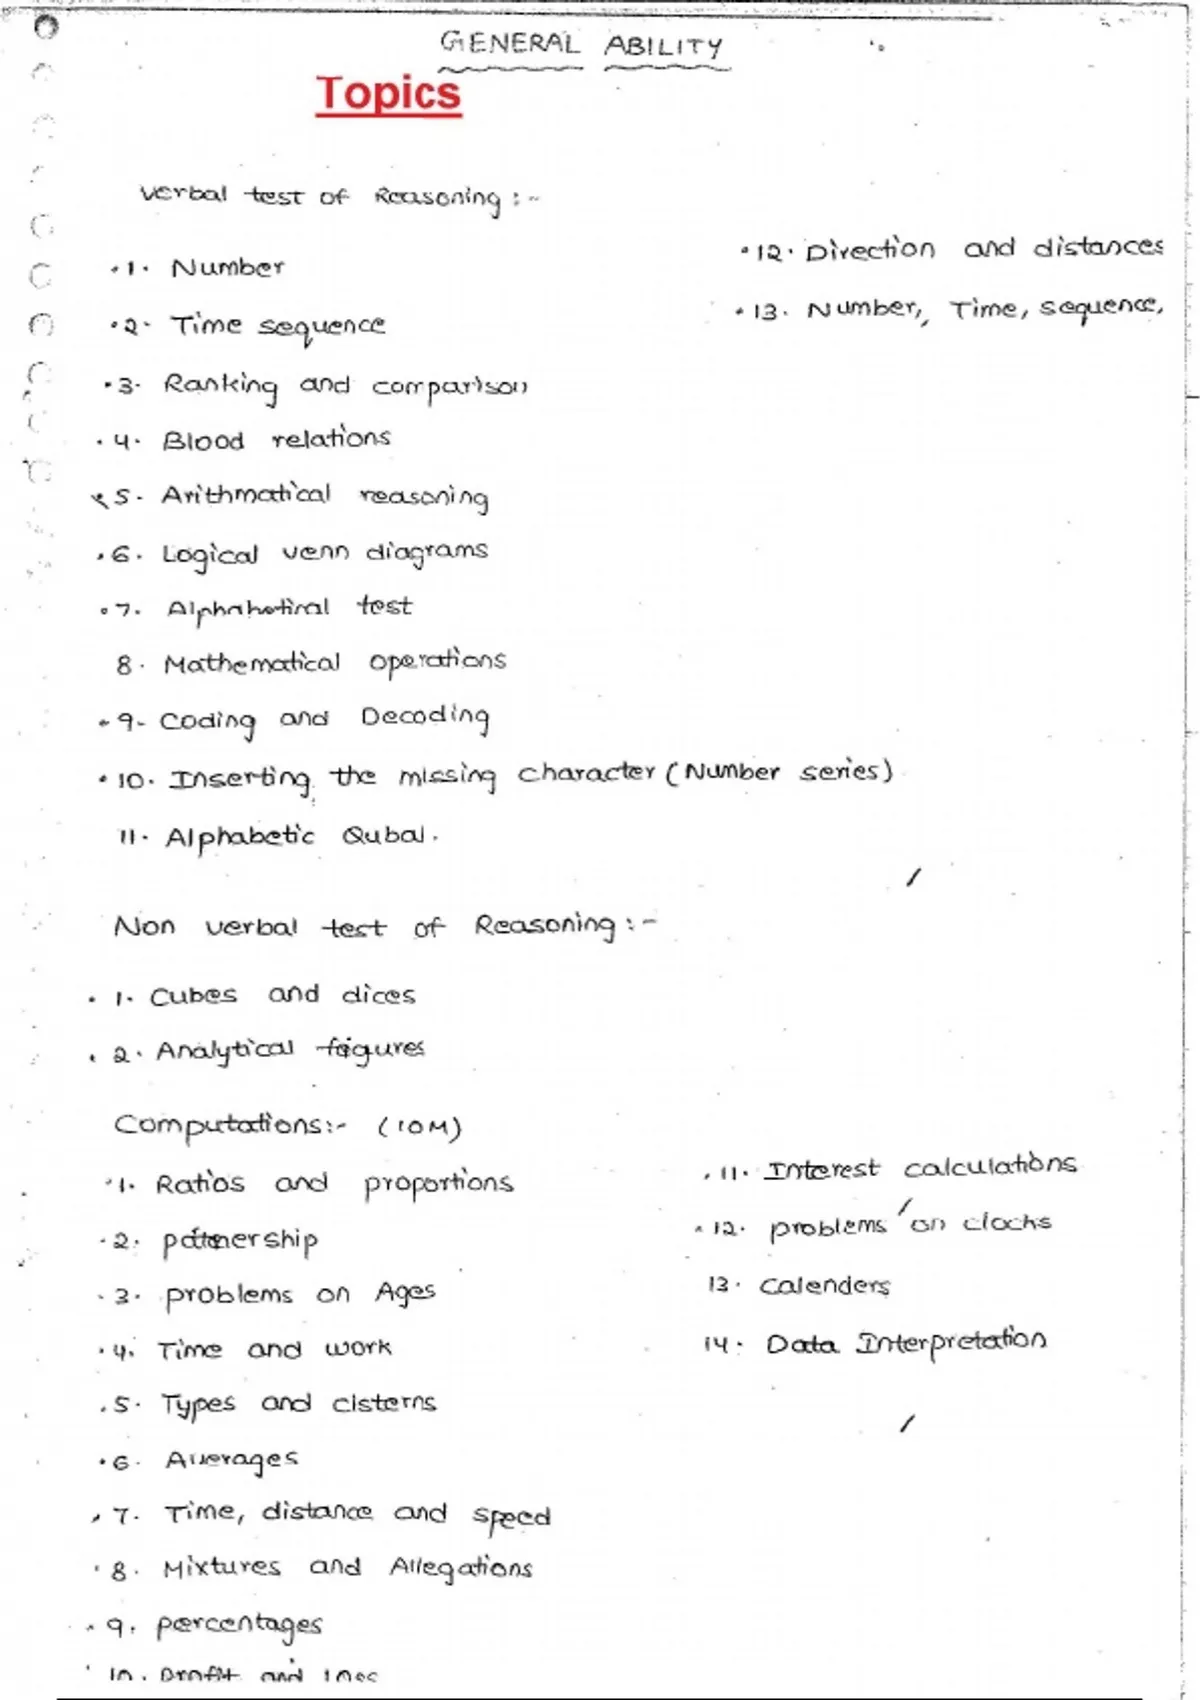 GENERAL ABILITY
Topics
Verbal test of Reasoning :-
1. Number
2. Time sequence
3. Ranking and comparison
4. Blood relations
5. Arithmatical reasoning
6. Logical venn diagrams
7. Alphabetical test
8. Mathematical operations
9. Coding and Decoding
10. Inserting the missing character (Number series)
11. Alphabetic Qubal.
12. Direction and distances
13. Number, Time, sequence,
Non verbal test of Reasoning :-
1. Cubes and dices
2. Analytical figures
Computations:- (10M)
1. Ratios and proportions
2. partnership
3. problems on Ages
4. Time and work
5. Types and cisterns
6. Averages
7. Time, distance and speed
8. Mixtures and Allegations
9. percentages
10. Profit and loss
11. Interest calculations
12. problems on clocks
13. Calenders
14. Data Interpretation